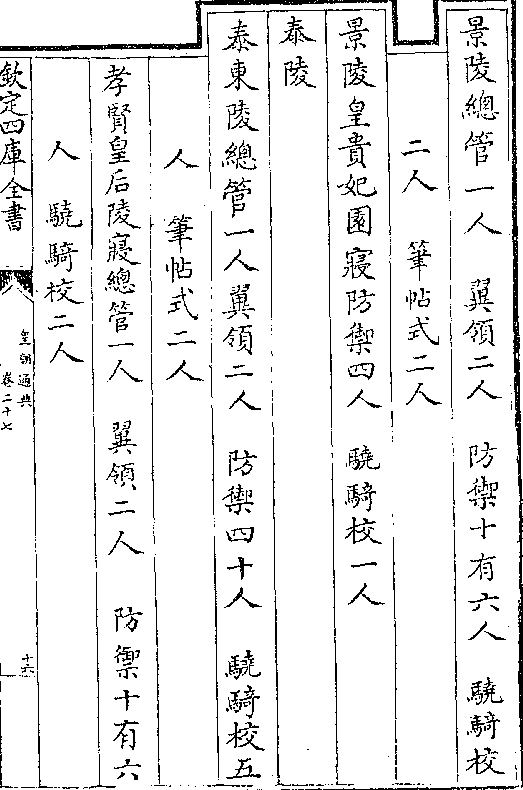 景陵總管一人 翼領二人 防禦十有六人 驍騎校
二人 筆帖式二人
景陵皇貴妃園寢防禦四人 驍騎校一人
泰陵
泰東陵總管一人翼領二人 防禦四十人 驍騎校五
人 筆帖式二人
孝賢皇后陵寢總管一人 翼領二人 防禦十有六
人 驍騎校二人
欽定四庫全書
皇朝通典
卷二十七
十六